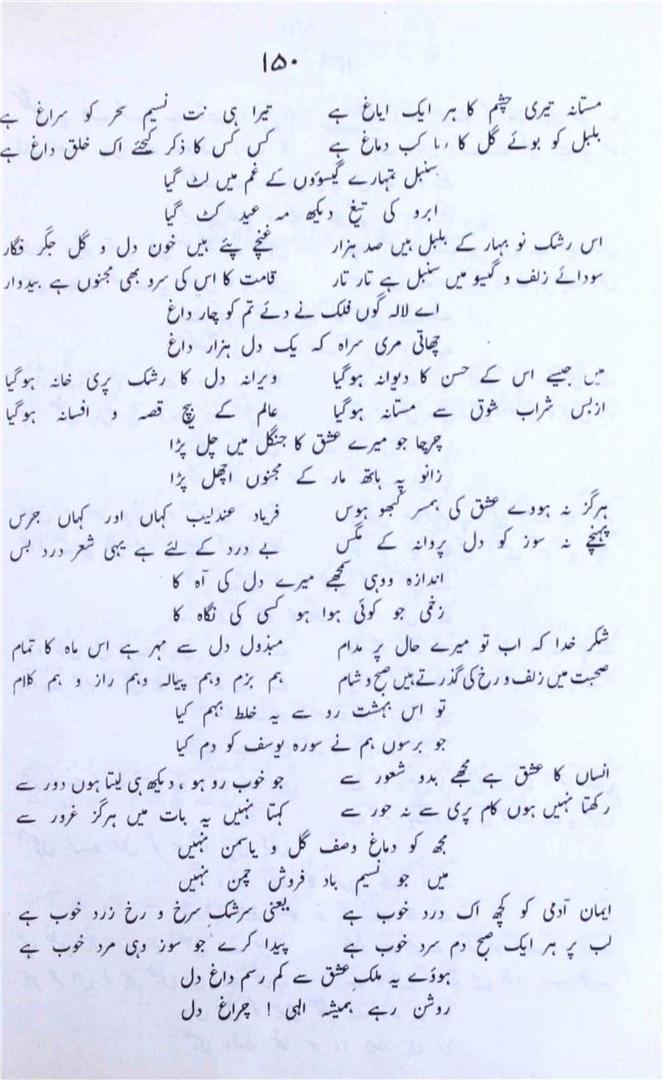 ۱۵۰
مستانہ تیری چشم کا ہر ایک ایاغ ہے تیرا ہی نت نسیم سحر کو سراغ ہے
بلبل کو بوئے گل کا ، سا کب دماغ ہے کس کس کا ذکر کیجئے اک خلق داغ ہے
سنبل تمہارے گیسوؤں کے غم میں لٹ گیا
ابرو کی تیغ دیکھ مہ عید کٹ گیا
اس رشک نو بہار کے بلبل ہیں صد ہزار غنچے پئے ہیں خون دل و گل جگر فگار
سودائے زلف و گیسو میں سنبل ہے تار تار قامت کا اس کی سرو بھی مجنوں ہے بیدوار
اے لالہ گوں فلک نے دئے تم کو چار داغ
چھاتی مری سراہ کہ یک دل ہزار داغ
میں جیسے اس کے حسن کا دیوانہ ہوگیا ویرانہ دل کا رشک پری خانہ ہوگیا
ازبس شراب شوق سے مستانہ ہوگیا عالم کے بیچ قصہ و افسانہ ہوگیا
چرچا جو میرے عشق کا جنگل میں چل پڑا
زانو پہ ہاتھ مار کے مجنوں اچھل پڑا
ہرگز نہ ہووے عشق کی ہمسر کبھو ہوس فریاد عندلیب کہاں اور کہاں جرس
پہنچے نہ سوز کو دل پروانہ کے مگس بے درد کے لئے ہے یہی شعر درد بس
اندازہ ووہی سمجھے میرے دل کی آہ کا
زخمی جو کوئی ہوا ہو کسی کی نگاہ کا
شکر خدا کہ اب تو میرے حال پر مدام مبذول دل سے مہر ہے اس ماہ کا تمام
صحبت میں زلف و رخ کی گذرتے ہیں صبح و شام ہم بزم وہم پیالہ وہم راز و ہم کلام
تو اس بہشت رو سے یہ خلط بہم کیا
جو برسوں ہم نے سورہ یوسف کو دم کیا
انساں کا عشق ہے مجھے بدو شعور سے جو خوب رو ہو ، دیکھ ہی لیتا ہوں دور سے
رکھتا نہیں ہوں کام پری سے نہ حور سے کہتا نہیں یہ بات میں ہرگز غرور سے
مجھ کو دماغ وصف گل و یاسمن نہیں
میں جو نسیم باد فروش چمن نہیں
ایمان آدمی کو کچھ اک درد خوب ہے یعنی سرشک سرخ و رخ زرد خوب ہے
لب پر ہر ایک صبح دم سرد خوب ہے پیدا کرے جو سوز وہی مرد خوب ہے
ہوؤے یہ ملک عشق سے کم رسم داغ دل
روشن رہے ہمیشہ الہی ! چراغ دل